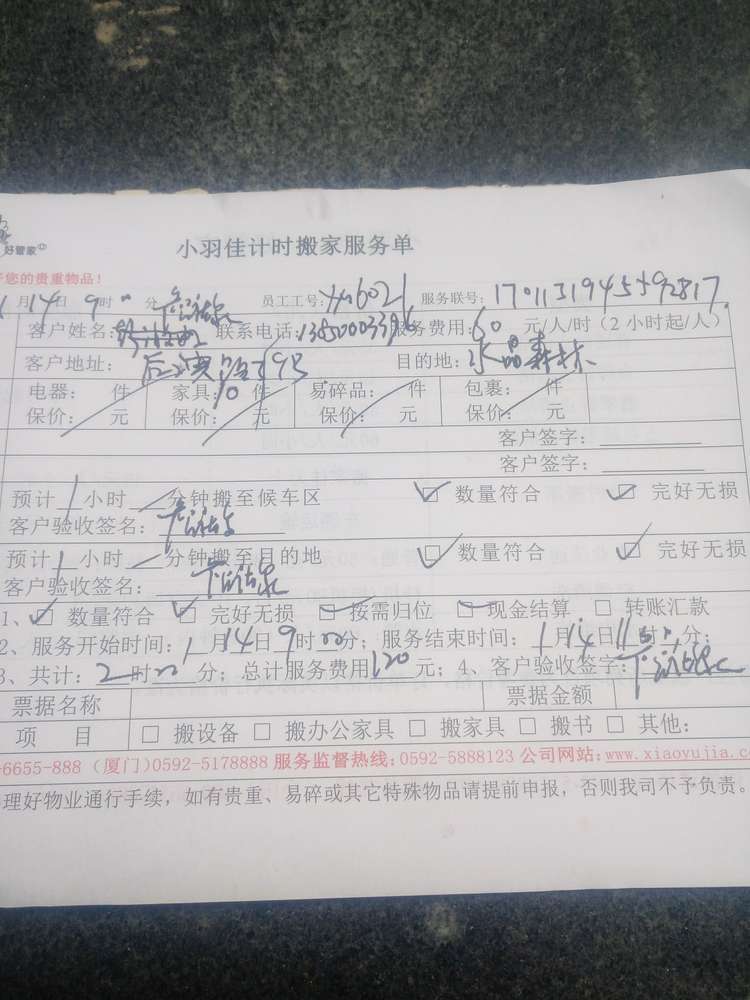 好管家
小羽佳计时搬家服务单
您的贵重物品!
月14日9时00分 员工工号: 服务联号:
客户姓名: 联系电话: 服务费用:60元/人/时(2小时起/人)
客户地址: 目的地:水晶森林
电器: 件 家具:10件 易碎品: 件 包裹: 件
保价: 元 保价: 元 保价: 元 保价: 元
客户签字:
客户签字:
预计1小时 分钟搬至候车区 ☑ 数量符合 ☑ 完好无损
客户验收签名:
预计1小时 分钟搬至目的地 ☑ 数量符合 ☑ 完好无损
客户验收签名:
1、☑ 数量符合 ☑ 完好无损 ☑ 按需归位 ☑ 现金结算 □ 转账汇款
2、服务开始时间:1月14日9时00分;服务结束时间:1月14日11时 分;
3、共计:2时00分;总计服务费用120元;4、客户验收签字:
票据名称 票据金额
项 目 □ 搬设备 □ 搬办公家具 □ 搬家具 □ 搬书 □ 其他:
-6655-888(厦门)0592-5178888 服务监督热线:0592-5888123 公司网站:www.xiaoyujia.c
理好物业通行手续,如有贵重、易碎或其它特殊物品请提前申报,否则我司不予负责。